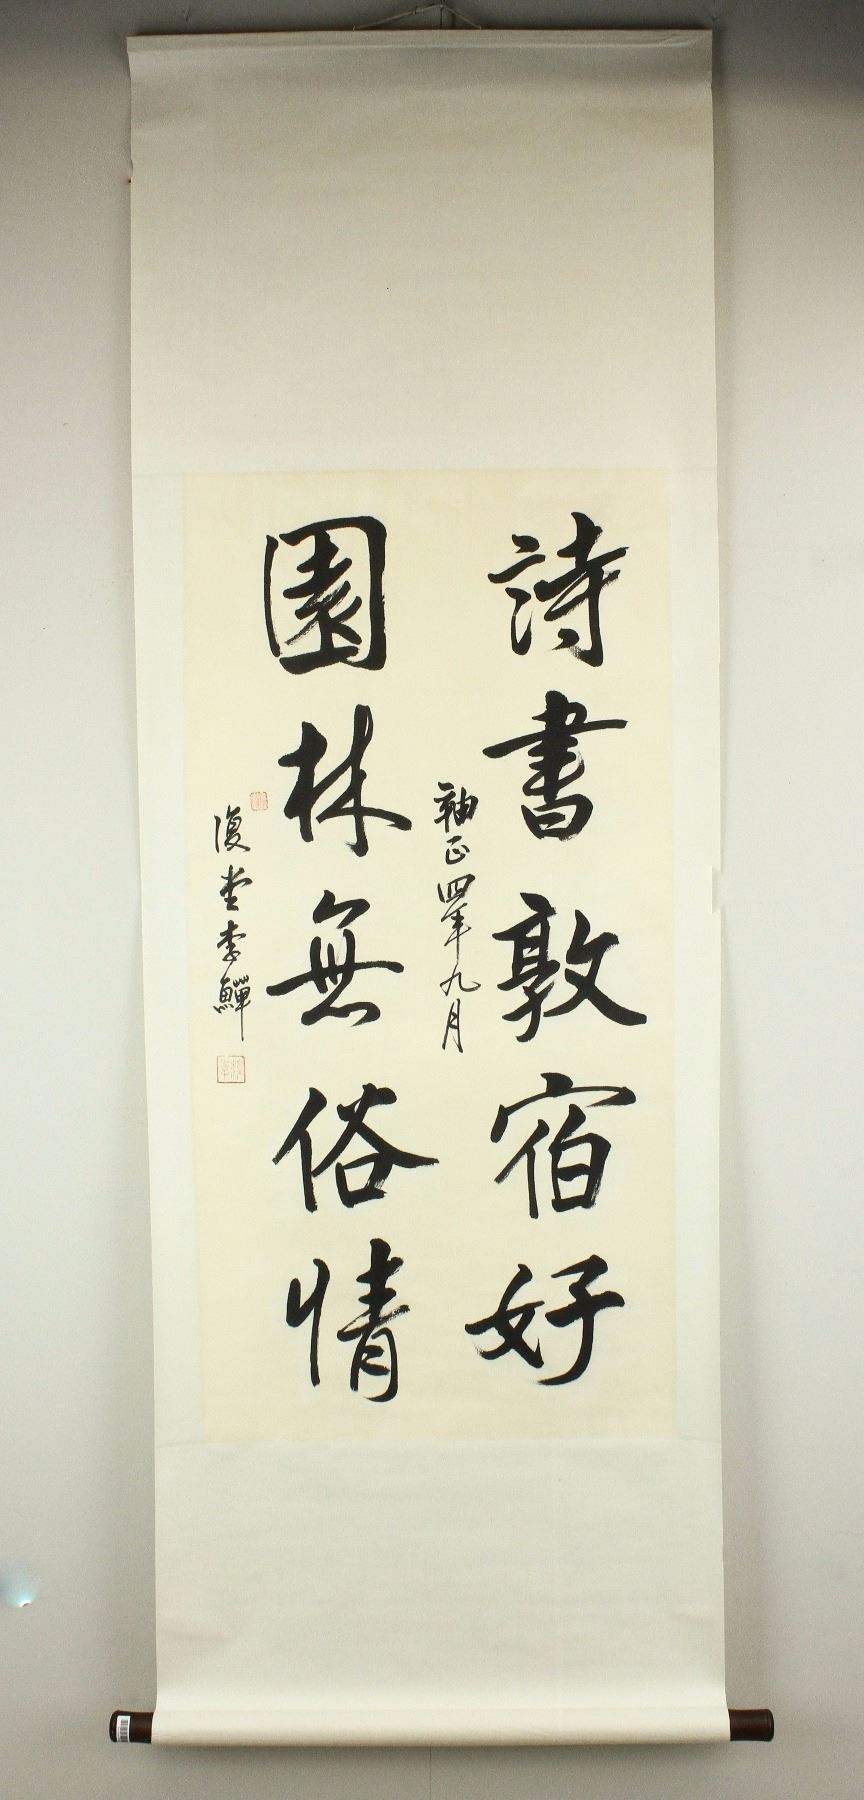 詩書敦宿好
袖正四年九月
園林無俗情
復堂李鱓